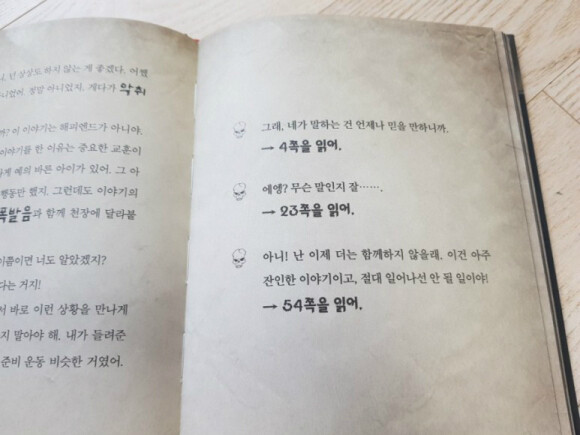 넌 상상도 하지 않는 게 좋겠다. 어쩔
아니었지. 게다가 악취
이 이야기는 해피엔드가 아니야.
이야기를 한 이유는 중요한 교훈이
예의 바른 아이가 있어. 그 아
행동만 했지. 그런데도 이야기의
폭발음과 함께 천장에 달라붙
이쯤이면 너도 알았겠지?
다는 거지!
서 바로 이런 상황을 만나게
지 말아야 해. 내가 들려준
준비 운동 비슷한 거였어.
그래, 네가 말하는 건 언제나 믿을 만하니까.
→ 4쪽을 읽어.
에엥? 무슨 말인지 잘…….
→ 23쪽을 읽어.
아니! 난 이제 더는 함께하지 않을래. 이건 아주
잔인한 이야기이고, 절대 일어나선 안 될 일이야!
→ 54쪽을 읽어.